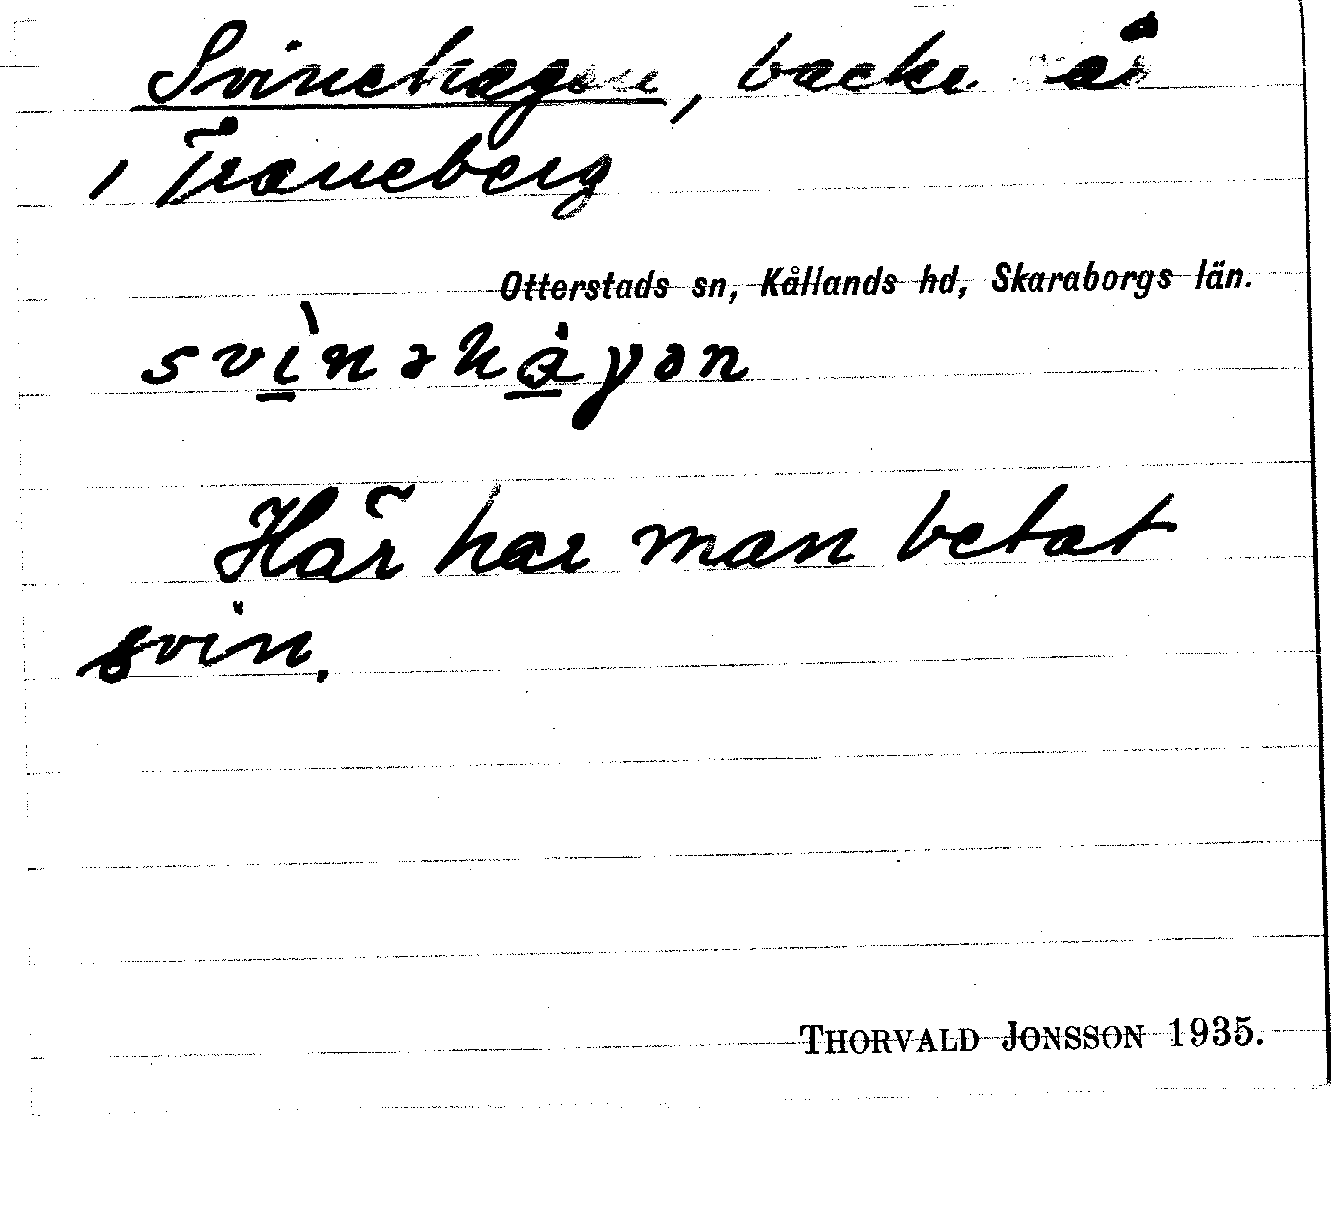 Svinehagen, backe å
i Traneberg
Otterstads sn, Kållands hd, Skaraborgs län.
svìnəhàgən
Här har man betat
svin.
THORVALD JONSSON 1935.